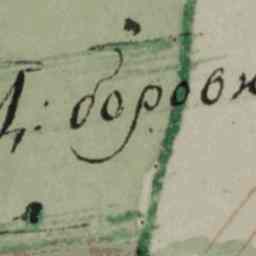 Д: боровк